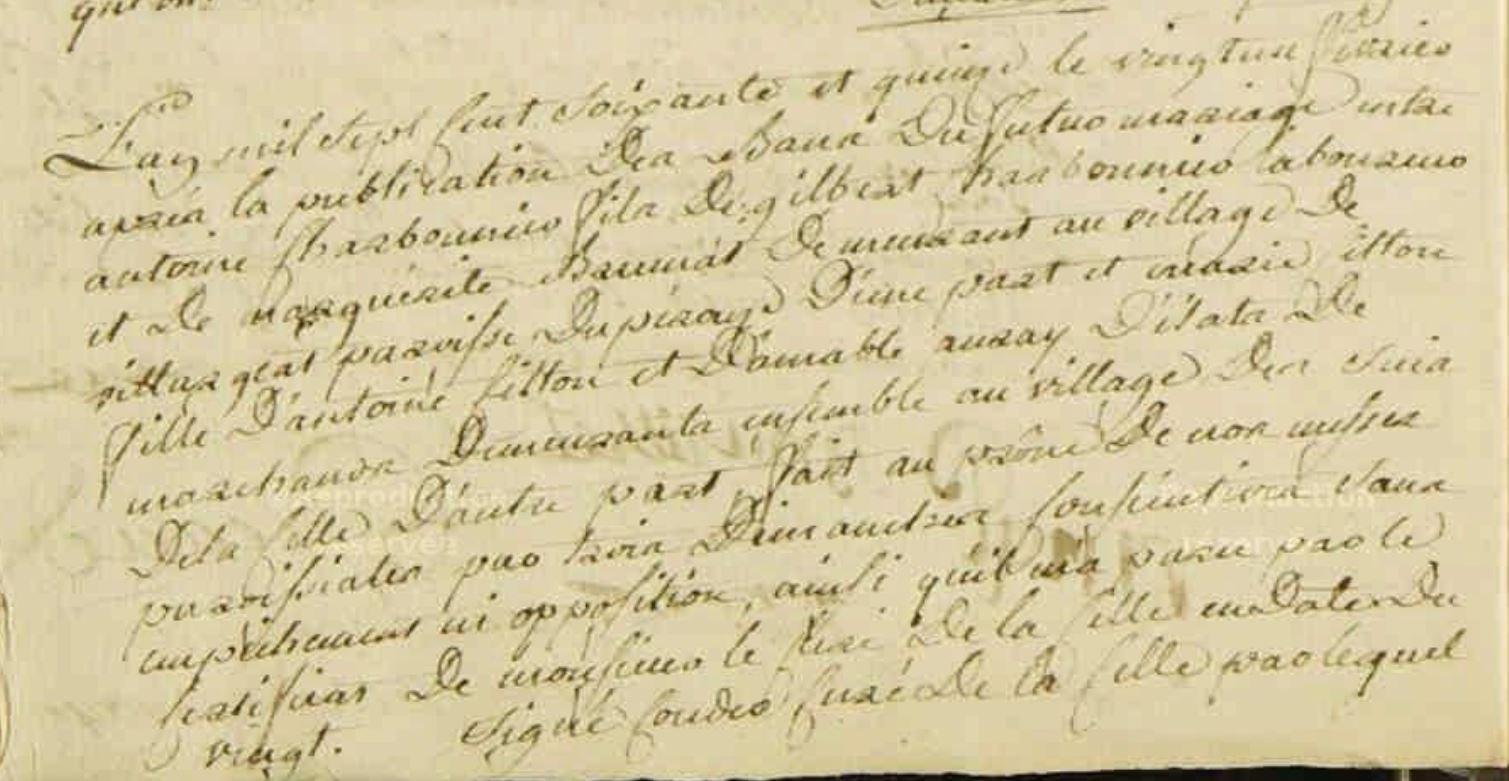 L'an mil sept cent soixante et quinze le vingtun fevrier
après la publication des Bans Du futur mariage entre
antoine charbonnier fils De gilbert charbonnier laboureur
et De marguerite Demeurant au village De
paroisse D'une part et marie itton
fille D'antoine itton et D'amable auzay D'état De
marchands Demeurants ensemble au village Des
De la Celle D'autre part, fait au prône De nos messes
paroissiales par trois Dimanches consécutives sans
empêchement ni opposition, ainsi qu'il m'a paru par le
certificat De monsieur le Curé De la Celle en Date Du
vingt. Signé Curé De la Celle par lequel